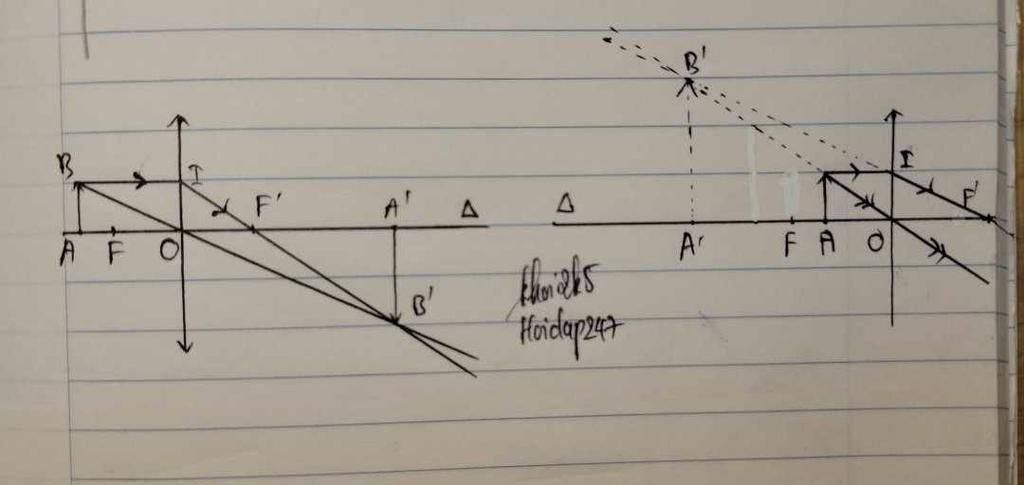 B I
F' A' Δ
A F O
B'
B'
I
Δ F'
A' F A O
khoi2k5
Hoidap247